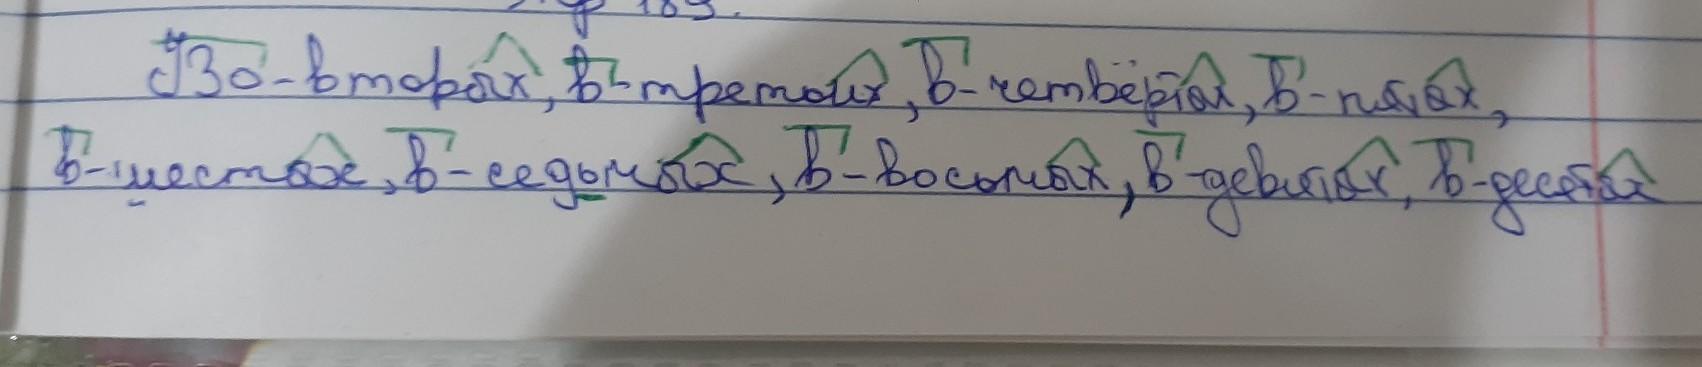 Упр 189.
Во-вторых, в-третих, в-четвёртых, в-пятых,
в-шестых, в-седомых, в-восомых, в-девятых, в-десятых